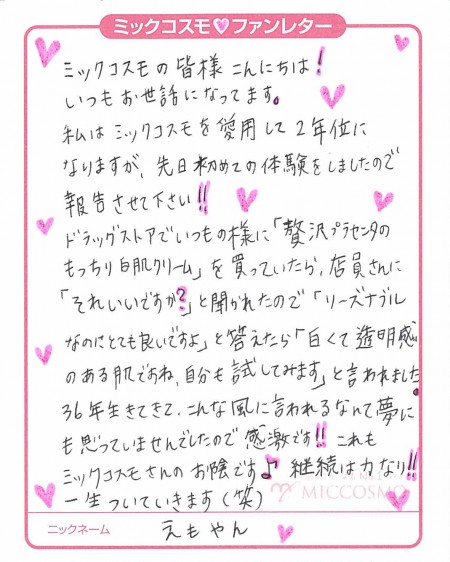 ミックコスモ♥ファンレター
ミックコスモの皆様こんにちは!
いつもお世話になってます。
私はミックコスモを愛用して2年位に
なりますが、先日初めての体験をしましたので
報告させて下さい!!
ドラッグストアでいつもの様に「贅沢プラセンタの
もっちり白肌クリーム」を買っていたら、店員さんに
「それいいですか?」と聞かれたので「リーズナブル
なのにとても良いですよ」と答えたら「白くて透明感
のある肌ですね、自分も試してみます」と言われました。
36年生きてきて、こんな風に言われるなんて夢に
も思っていませんでしたので感激です!!これも
ミックコスモさんのお陰です♪継続は力なり!!
一生ついていきます(笑)
MICCOSMO
ニックネーム えもやん